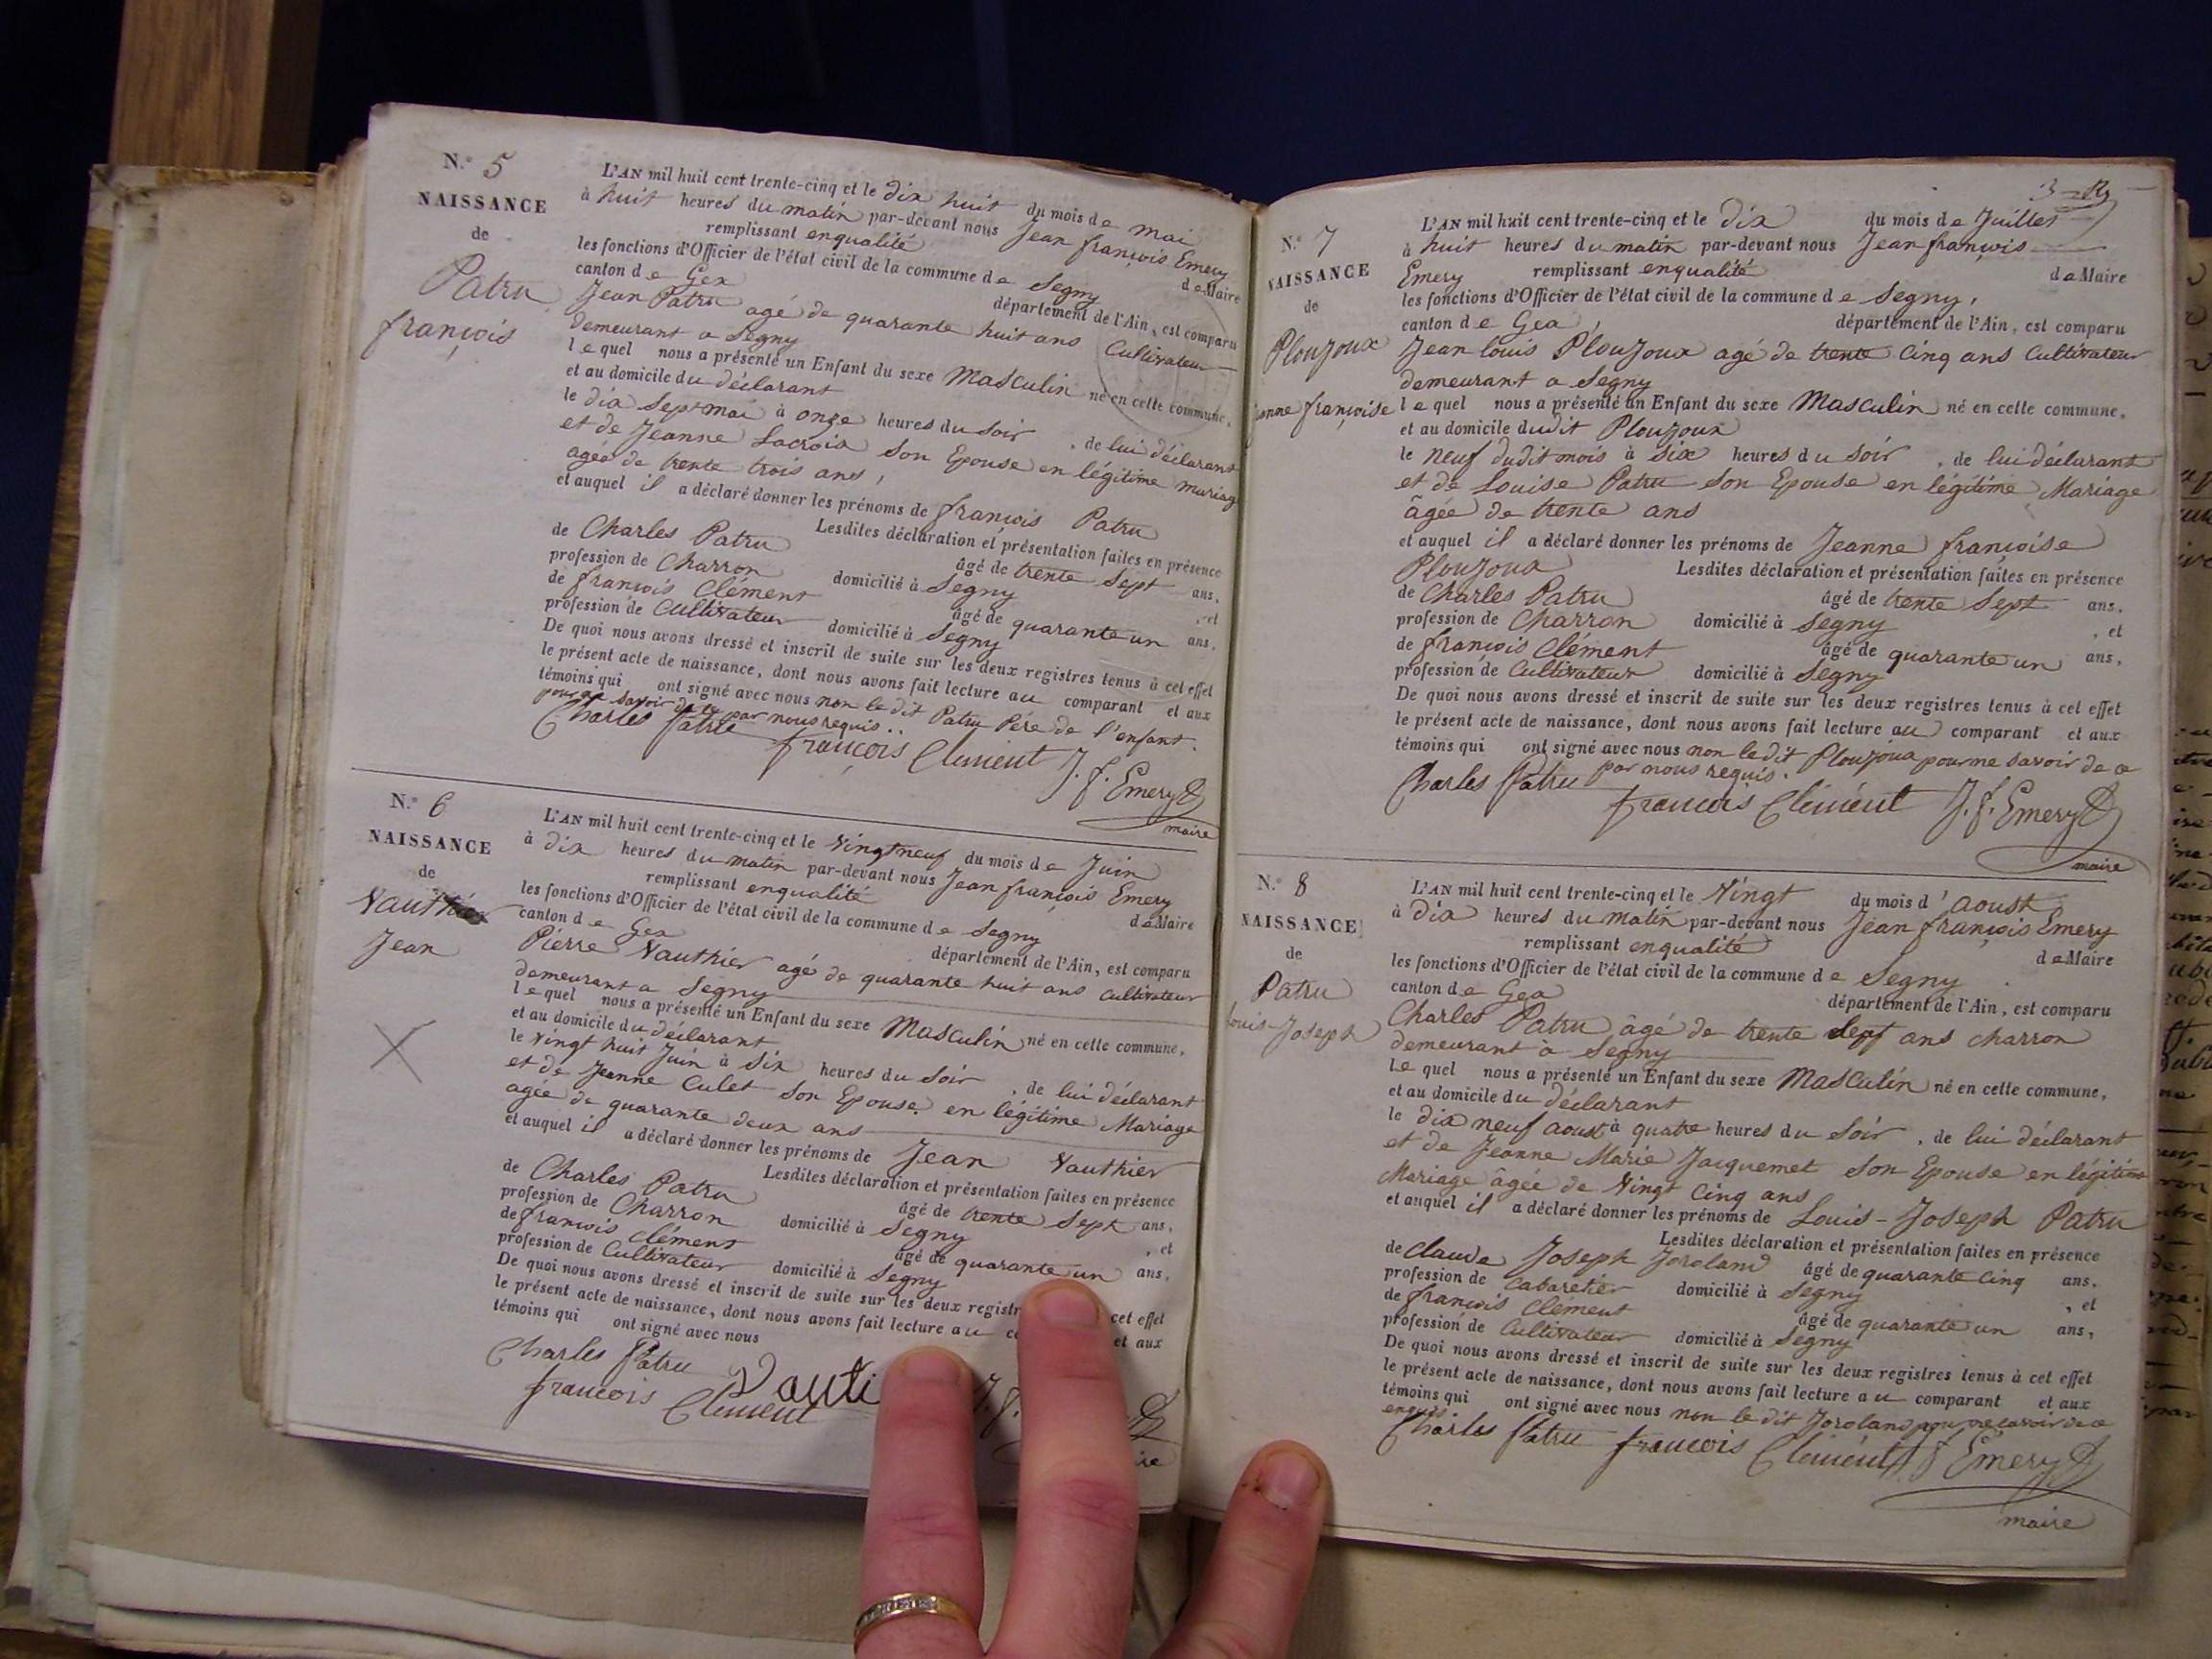 N.° 5
NAISSANCE
de
Patru
françois
L'AN mil huit cent trente-cinq et le dix huit du mois de mai
à huit heures du matin par-devant nous Jean françois Emery
remplissant enqualité de Maire
les fonctions d'Officier de l'état civil de la commune de Segny
canton de Gex département de l'Ain, est comparu
Jean Patru agé de quarante huit ans Cultivateur
demeurant a Segny
lequel nous a présenté un Enfant du sexe Masculin né en cette commune,
et au domicile du déclarant
le dix Sept mai à onze heures du Soir, de lui déclarant
et de Jeanne Lacroix Son Epouse en légitime mariage
agée de trente trois ans,
et auquel il a déclaré donner les prénoms de françois Patru
Lesdites déclaration et présentation faites en présence
de Charles Patru âgé de trente Sept ans,
profession de Charron domicilié à Segny, et
de françois Clément âgé de quarante un ans,
profession de Cultivateur domicilié à Segny
De quoi nous avons dressé et inscrit de suite sur les deux registres tenus à cet effet
le présent acte de naissance, dont nous avons fait lecture au comparant et aux
témoins qui ont signé avec nous non le dit Patru Père de l'enfant.
pour ne Savoir de ce par nous requis..
Charles Patru
françois Clement J. f. Emery
maire
N.° 6
NAISSANCE
de
Vauthier
Jean
L'AN mil huit cent trente-cinq et le Vingt neuf du mois de Juin
à dix heures du matin par-devant nous Jean françois Emery
remplissant enqualité de Maire
les fonctions d'Officier de l'état civil de la commune de Segny
canton de Gex département de l'Ain, est comparu
Pierre Vauthier agé de quarante huit ans Cultivateur
demeurant a Segny
lequel nous a présenté un Enfant du sexe Masculin né en cette commune,
et au domicile du déclarant
le Vingt huit Juin à Six heures du Soir, de lui déclarant
et de Jeanne Culet Son Epouse en légitime Mariage
agée de quarante deux ans
et auquel il a déclaré donner les prénoms de Jean Vauthier
Lesdites déclaration et présentation faites en présence
de Charles Patru âgé de trente Sept ans,
profession de Charron domicilié à Segny, et
de françois Clément âgé de quarante un ans,
profession de Cultivateur domicilié à Segny
De quoi nous avons dressé et inscrit de suite sur les deux registr cet effet
le présent acte de naissance, dont nous avons fait lecture au et aux
témoins qui ont signé avec nous
Charles Patru Vauti
françois Clement J. f.
N.° 7
NAISSANCE
de
Ploujoux
Jeanne françoise
L'AN mil huit cent trente-cinq et le dix du mois de Juillet
à huit heures du matin par-devant nous Jean françois
Emery remplissant enqualité de Maire
les fonctions d'Officier de l'état civil de la commune de Segny,
canton de Gex, département de l'Ain, est comparu
Jean louis Ploujoux agé de trente Cinq ans Cultivateur
demeurant a Segny
lequel nous a présenté un Enfant du sexe Masculin né en cette commune,
et au domicile dudit Ploujoux
le neuf dudit mois à six heures du Soir, de lui déclarant
et de Louise Patru Son Epouse en légitime Mariage
âgée de trente ans
et auquel il a déclaré donner les prénoms de Jeanne françoise
Ploujoux Lesdites déclaration et présentation faites en présence
de Charles Patru âgé de trente Sept ans,
profession de Charron domicilié à Segny, et
de françois Clément âgé de quarante un ans,
profession de Cultivateur domicilié à Segny
De quoi nous avons dressé et inscrit de suite sur les deux registres tenus à cet effet
le présent acte de naissance, dont nous avons fait lecture au comparant et aux
témoins qui ont signé avec nous non le dit Ploujoux pour ne savoir de ce
par nous requis.
Charles Patru françois Clément J. f. Emery
maire
N.° 8
NAISSANCE
de
Patru
Louis-Joseph
L'AN mil huit cent trente-cinq et le Vingt du mois d'aoust
à dix heures du matin par-devant nous Jean françois Emery
remplissant enqualité de Maire
les fonctions d'Officier de l'état civil de la commune de Segny
canton de Gex département de l'Ain, est comparu
Charles Patru âgé de trente Sept ans charron
demeurant à Segny
Lequel nous a présenté un Enfant du sexe Masculin né en cette commune,
et au domicile du déclarant
le dix neuf aoust à quatre heures du Soir, de lui déclarant
et de Jeanne Marie Jacquemet Son Epouse en légitime
Mariage âgée de Vingt Cinq ans
et auquel il a déclaré donner les prénoms de Louis-Joseph Patru
Lesdites déclaration et présentation faites en présence
de Claude Joseph Joroland âgé de quarante Cinq ans,
profession de Cabaretier domicilié à Segny, et
de françois Clément âgé de quarante un ans,
profession de Cultivateur domicilié à Segny
De quoi nous avons dressé et inscrit de suite sur les deux registres tenus à cet effet
le présent acte de naissance, dont nous avons fait lecture au comparant et aux
témoins qui ont signé avec nous non le dit Joroland pour ne savoir de ce
enquis.
Charles Patru françois Clément J. f. Emery
maire